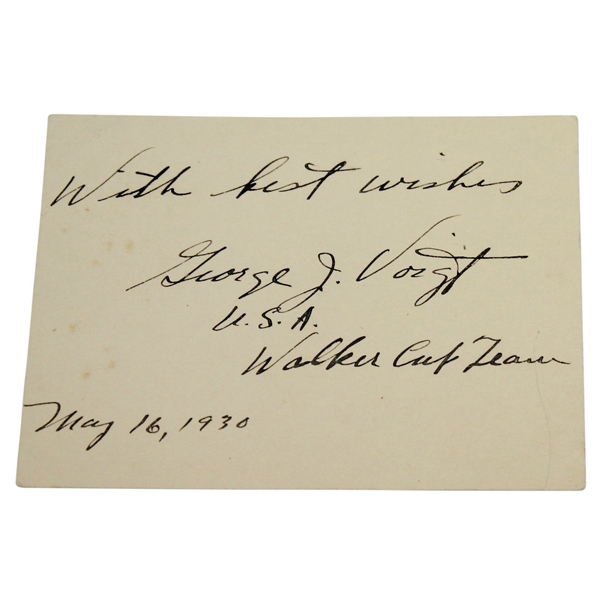 With best wishes
George J. Voigt
U.S.A.
Walker Cup Team
May 16, 1930